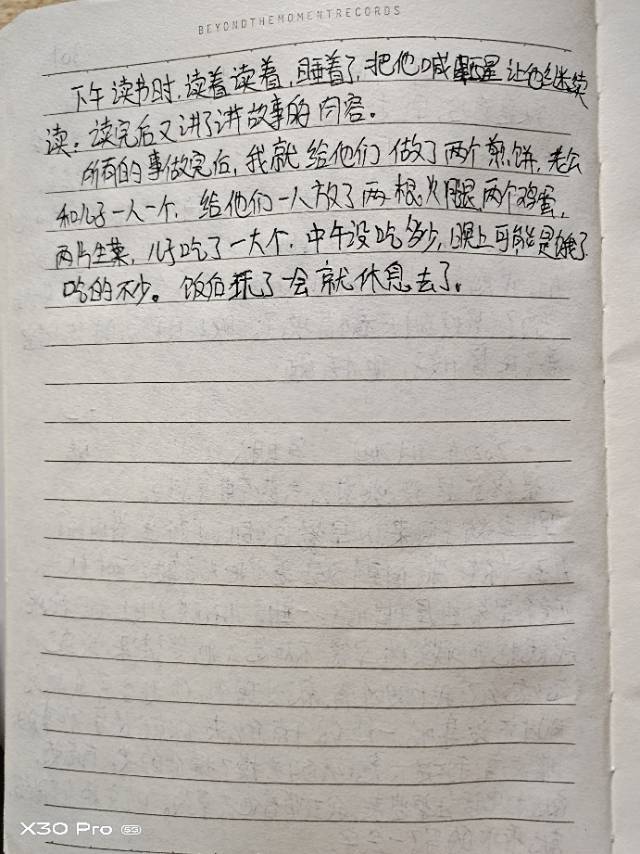 BEYONDTHEMOMENTRECORDS
下午读书时,读着读着,睡着了,把他喊醒让他继续
读。读完后又讲了讲故事的内容。
所有的事做完后,我就给他们做了两个煎饼,老公
和儿子一人一个,给他们一人放了两根火腿,两个鸡蛋,
两片生菜,儿子吃了一大个,中午没吃多少,晚上可能是饿了
吃的不少。饭后玩了一会就休息去了。
X30 Pro 5G